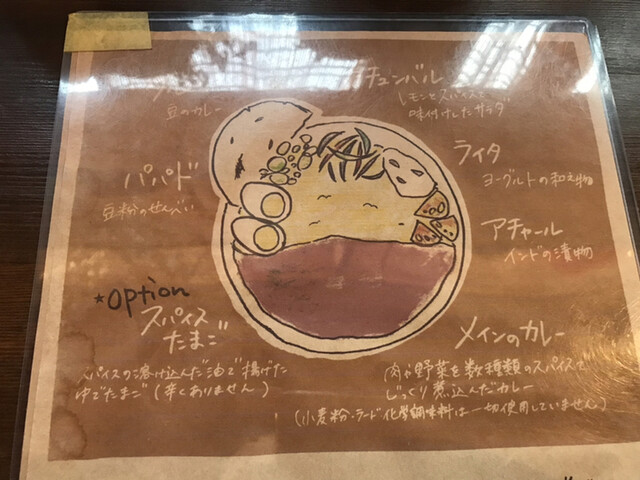 カチュンバル
豆のカレー
レモンとスパイスで
味付けしたサラダ
ライタ
ヨーグルトの和え物
パパド
豆粉のせんべい
アチャール
インドの漬物
★Option
スパイス
たまご
スパイスの溶け込んだ油で揚げた
ゆでたまご(辛くありません)
メインのカレー
肉や野菜を数種類のスパイスで
じっくり煮込んだカレー
(小麦粉・ラード化学調味料は一切使用していません)